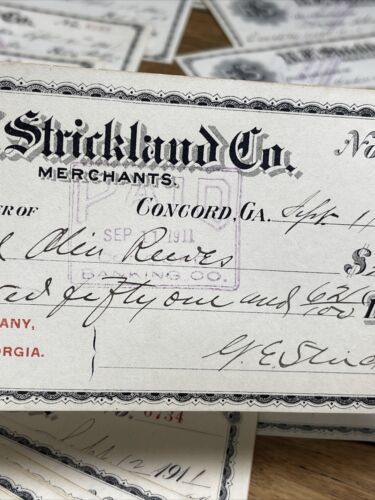 Strickland Co.
No
MERCHANTS.
ER OF
CONCORD, GA. Sept. 11
PAID
SEP 1911
BANKING CO.
Olin Reeves
$
red fifty one and 62/100
ANY,
ORGIA.
6734
Sept 12 1911